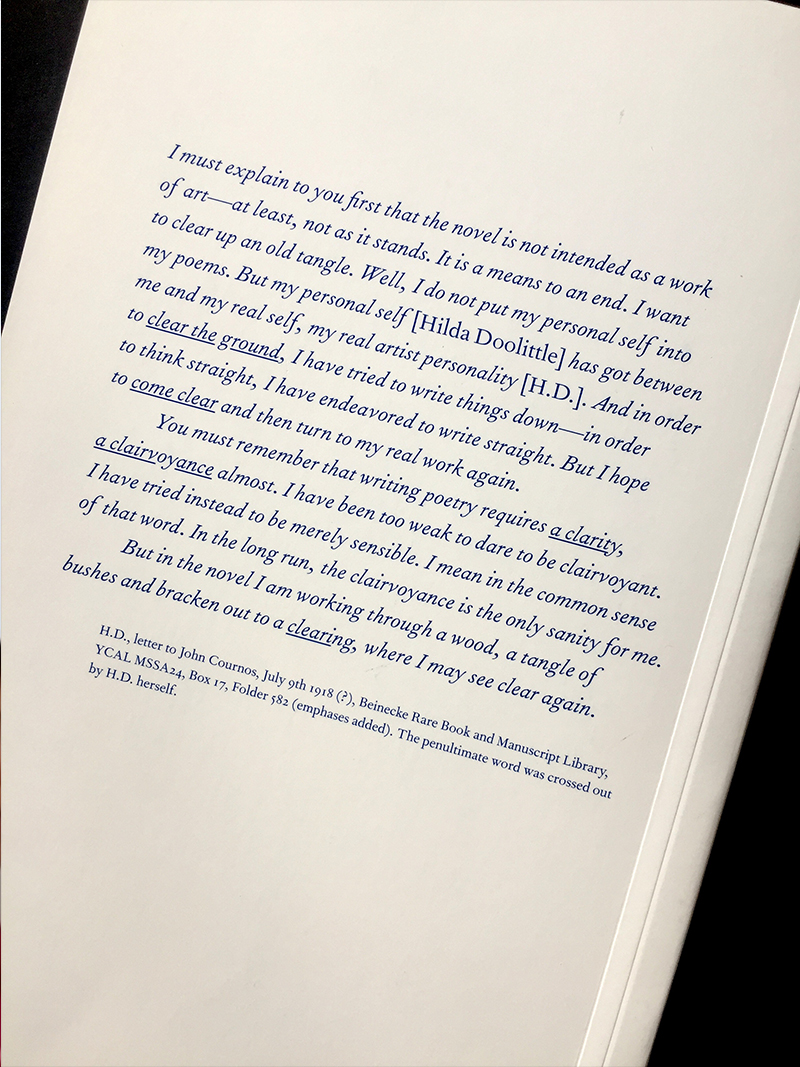 I must explain to you first that the novel is not intended as a work
of art—at least, not as it stands. It is a means to an end. I want
to clear up an old tangle. Well, I do not put my personal self into
my poems. But my personal self [Hilda Doolittle] has got between
me and my real self, my real artist personality [H.D.]. And in order
to clear the ground, I have tried to write things down—in order
to think straight, I have endeavored to write straight. But I hope
to come clear and then turn to my real work again.
You must remember that writing poetry requires a clarity,
a clairvoyance almost. I have been too weak to dare to be clairvoyant.
I have tried instead to be merely sensible. I mean in the common sense
of that word. In the long run, the clairvoyance is the only sanity for me.
But in the novel I am working through a wood, a tangle of
bushes and bracken out to a clearing, where I may see clear again.
H.D., letter to John Cournos, July 9th 1918 (?), Beinecke Rare Book and Manuscript Library,
YCAL MSSA24, Box 17, Folder 582 (emphases added). The penultimate word was crossed out
by H.D. herself.